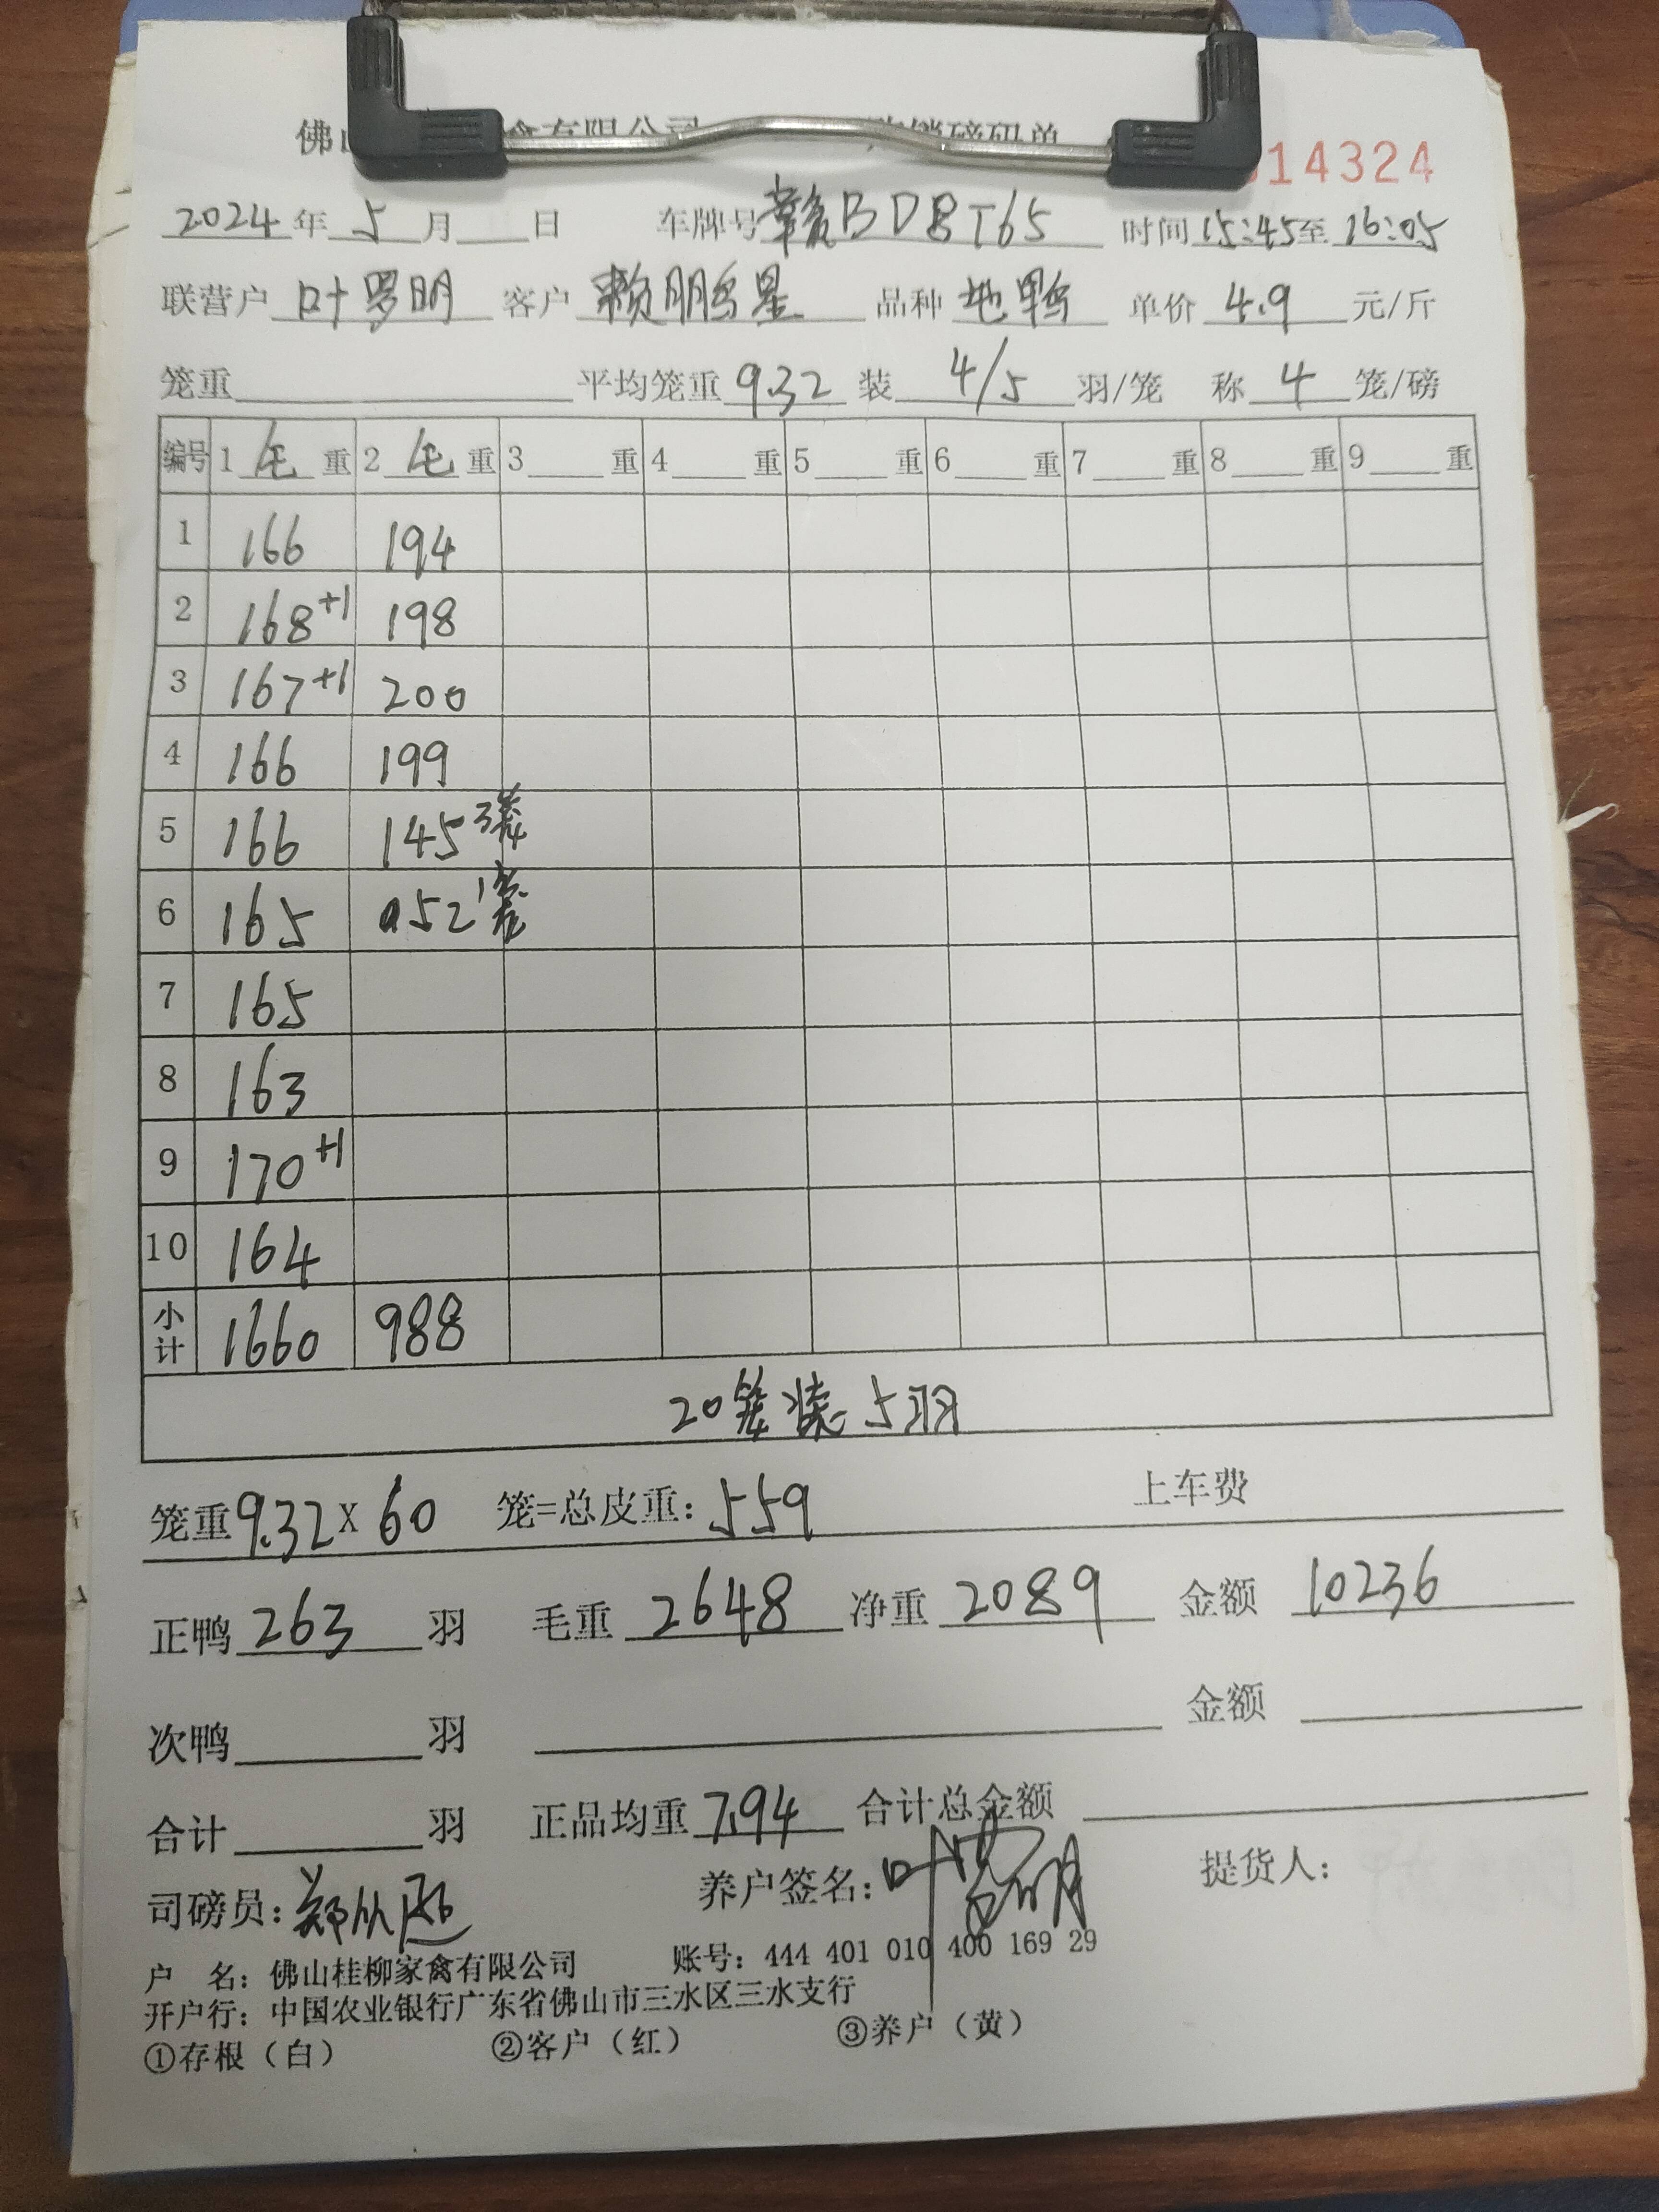 佛山 禽有限公司 销磅码单
14324
2024年5月 日 车牌号 赣BD8T65 时间15:45至16:05
联营户 叶罗明 客户 赖鹏星 品种 地鸭 单价 4.9 元/斤
笼重 平均笼重 9.32 装 4/5 羽/笼 称 4 笼/磅
编号 1 毛 重 2 毛 重 3 重 4 重 5 重 6 重 7 重 8 重 9 重
1 166 194
2 168+1 198
3 167+1 200
4 166 199
5 166 145 3笼
6 165 052 1笼
7 165
8 163
9 170+1
10 164
小计 1660 988
20笼装5羽
笼重9.32×60 笼=总皮重:559 上车费
正鸭 263 羽 毛重 2648 净重 2089 金额 10236
次鸭 羽 金额
合计 羽 正品均重 7.94 合计总金额
司磅员: 养户签名:叶罗明 提货人:
户 名: 佛山桂柳家禽有限公司 账号: 444 401 010 400 169 29
开户行: 中国农业银行广东省佛山市三水区三水支行
①存根（白） ②客户（红） ③养户（黄）